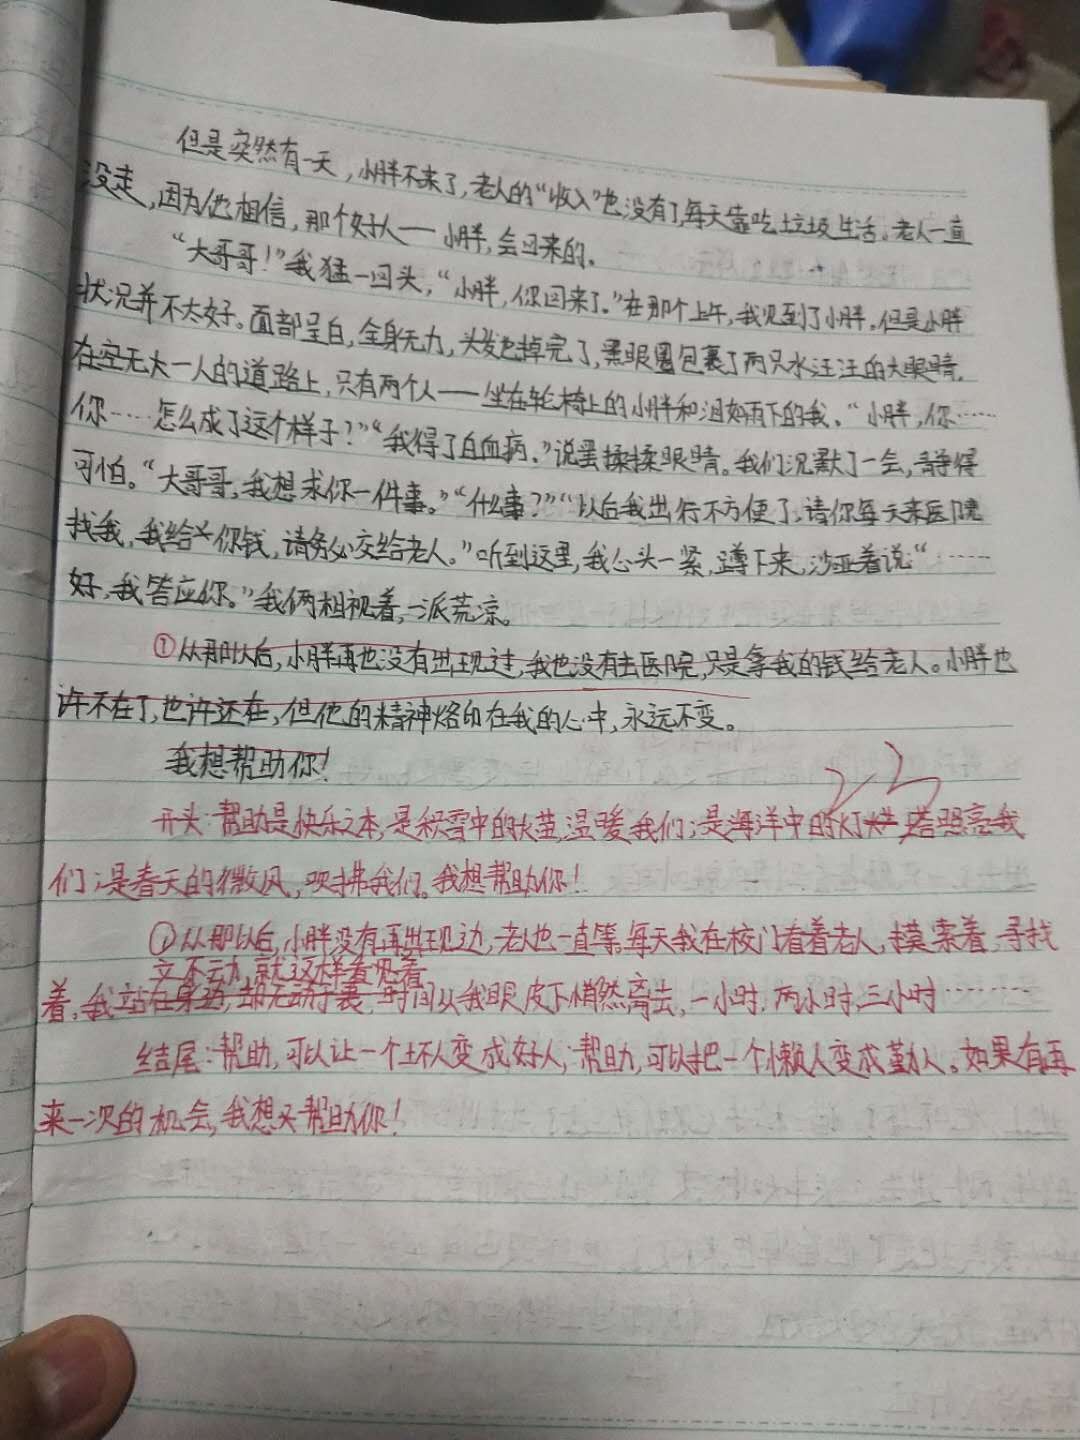 但是突然有一天，小胖不来了，老人的“收入”也没有了，每天靠吃垃圾生活。老人一直
没走，因为他相信，那个好人——小胖，会回来的。
“大哥哥！”我猛一回头，“小胖，你回来了。”在那个上午，我见到了小胖。但是小胖
状况并不太好。面部呈白，全身无力，头发也掉完了，黑眼圈包裹了两只水汪汪的大眼睛。
在空无大一人的道路上，只有两个人——坐在轮椅上的小胖和泪如雨下的我。“小胖，你……
你……怎么成了这个样子？”“我得了白血病。”说罢揉揉眼睛。我们沉默了一会，静得
可怕。“大哥哥，我想求你一件事。”“什么事？”“以后我出行不方便了，请你每天来医院
找我，我给你钱，请务必交给老人。”听到这里，我心头一紧，蹲下来，沙亚着说“……
好，我答应你。”我俩相视着，一派荒凉。
①从那以后，小胖再也没有出现过，我也没有去医院，只是拿我的钱给老人。小胖也
许不在了，也许还在，但他的精神烙印在我的心中，永远不变。
我想帮助你！
开头：帮助是快乐之本，是积雪中的火苗，温暖我们；是海洋中的灯塔照亮我
们；是春天的微风，吹拂我们。我想帮助你！
①从那以后，小胖没有再出现边，老人也一直等。每天我在校门看着老人，摸索着，寻找
立不动，就这样看见着
着，我站在身边，却无动于衷，时间从我眼皮下悄然离去，一小时，两小时，三小时………
结尾：帮助，可以让一个坏人变成好人；帮助，可以把一个懒人变成勤人。如果有再
来一次的机会，我想帮助你！